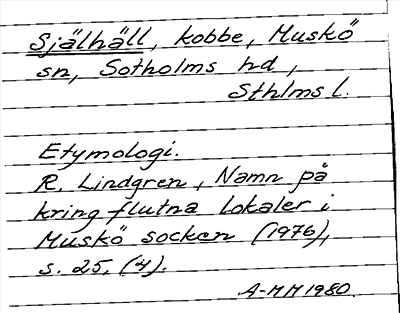 Själhäll, kobbe, Muskö
sn, Sotholms hd,
Sthlms l.
Etymologi.
R. Lindgren, Namn på
kringflutna lokaler i
Muskö socken (1976),
s. 25, (4).
A-MM 1980.